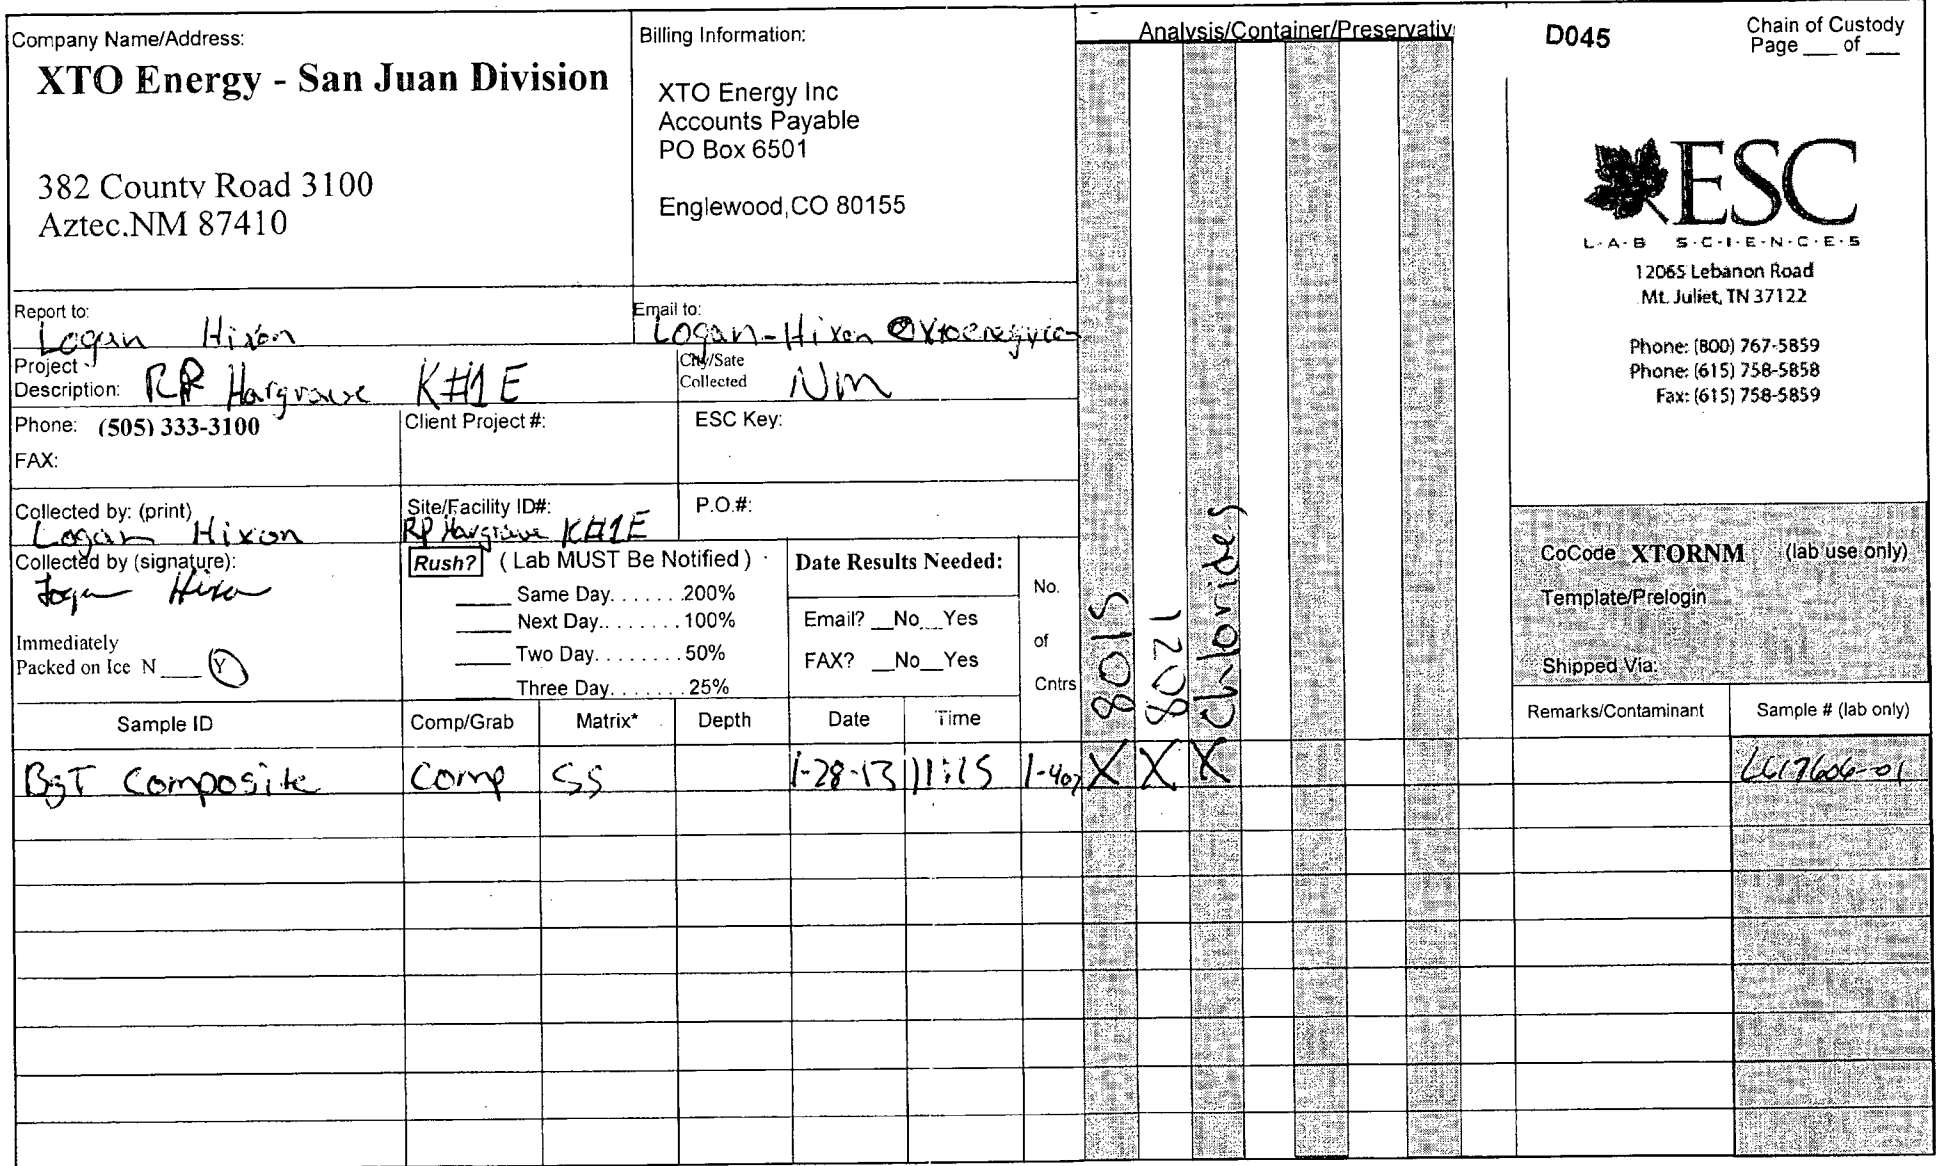 Company Name/Address:
XTO Energy - San Juan Division
382 County Road 3100
Aztec.NM 87410
Billing Information:
XTO Energy Inc
Accounts Payable
PO Box 6501
Englewood,CO 80155
Analysis/Container/Preservativ
D045
Chain of Custody
Page ___ of ___
ESC
L·A·B S·C·I·E·N·C·E·S
12065 Lebanon Road
Mt. Juliet, TN 37122
Phone: (800) 767-5859
Phone: (615) 758-5858
Fax: (615) 758-5859
Report to:
Logan Hixon
Email to:
Logan-Hixon@xtoenergy.co
Project
Description: RP Hargrave K#1E
City/Sate
Collected NM
Phone: (505) 333-3100
FAX:
Client Project #:
ESC Key:
Collected by: (print)
Logan Hixon
Site/Facility ID#:
RP Hargrave K#1E
P.O.#:
Collected by (signature):
Logan Hixon
Immediately
Packed on Ice N ___ Y
Rush? ( Lab MUST Be Notified )
____ Same Day. . . . . . .200%
____ Next Day.. . . . . . .100%
____ Two Day. . . . . . . .50%
____ Three Day. . . . . . .25%
Date Results Needed:
Email? __No__Yes
FAX? __No__Yes
No.
of
Cntrs
8015
8021
Chlorides
CoCode XTORNM (lab use only)
Template/Prelogin
Shipped Via:
Sample ID Comp/Grab Matrix* Depth Date Time Remarks/Contaminant Sample # (lab only)
BGT Composite Comp SS 1-28-13 11:15 1-4oz X X X L617606-01